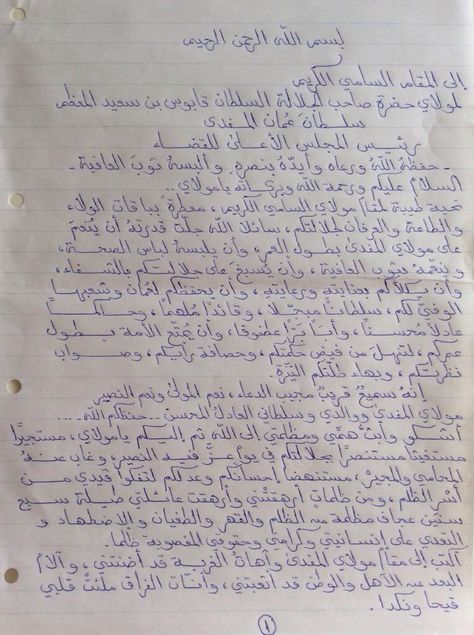 بسم الله الرحمن الرحيم
إلى المقام السامي الكريم
لمولاي حضرة صاحب الجلالة السلطان قابوس بن سعيد المعظم
سلطان عُمان المفدى
رئيس المجلس الأعلى للقضاء
- حفظهُ اللهُ ورعاه وأيّدهُ بنصرهِ وألبسهُ ثوبَ العافية -
السلامُ عليكم ورحمة الله وبركاته يامولاي ..
تحية طيبة لمقام مولاي السامي الكريم، معطرةً بباقات الولاء
والطاعة والعرفان لجلالتكم، سائلا الله جلّت قدرتهُ أن يُنعمَ
على مولاي المفدى بطول العمر، وأن يلبسهُ لباس الصحة،
و بثوب العافية، وأن يُسبغ على جلالتكم بالشفاء،
وأن يكلأكم بعنايتهِ ورعايته، وأن يحفظكم لعُمان وشعبها
الوفيّ لكم، سلطاناً مبجلاً، وقائداً مُلهماً، وحاكماً
عادلاً مُحسناً، وأباً برّاً عطوفا، وأن يُمتّع الأمة بطول
عمركم، لتنهلَ من فيض حكمتكم، وحصافة رأيكم، وصواب
نظرتكم، وبهاء طلّتكم النيّرة.
إنهُ سميعٌ قريبٌ مجيب الدعاء، نعم المولى ونعم النصير
مولاي المفدى ووالدي وسلطاني العادل المحسن .. حفظكم الله ....
أشكو وأبثُّ همّي ومظلمتي إلى الله ثم إليكم يامولاي، مستجيراً
مستغيثا مستنصراً بجلالتكم في يومٍ عزَّ فيه النصير، وغاب عنهُ
المحامي والمجير، مستنهضاً إحسانكم وعدلكم لتفكوا قيدي من
أسر الظلم، ومن ظلماتٍ أرهقتني وأرهقت عائلتي طيلة سبع
سنين عجاف مظلمة من الظلم والقهر والطغيان والاضطهاد و
التعدي على إنسانيتي وكرامتي وحقوقي المغصوبة ظلما.
أكتب إلى مقام مولاي المفدى وآهات الغربة قد أضنتني، وآلام
البعد عن الأهل والوطن قد أتعبتني، وأنّات الفراق ملئت قلبي
قيحا ونكدا.
١